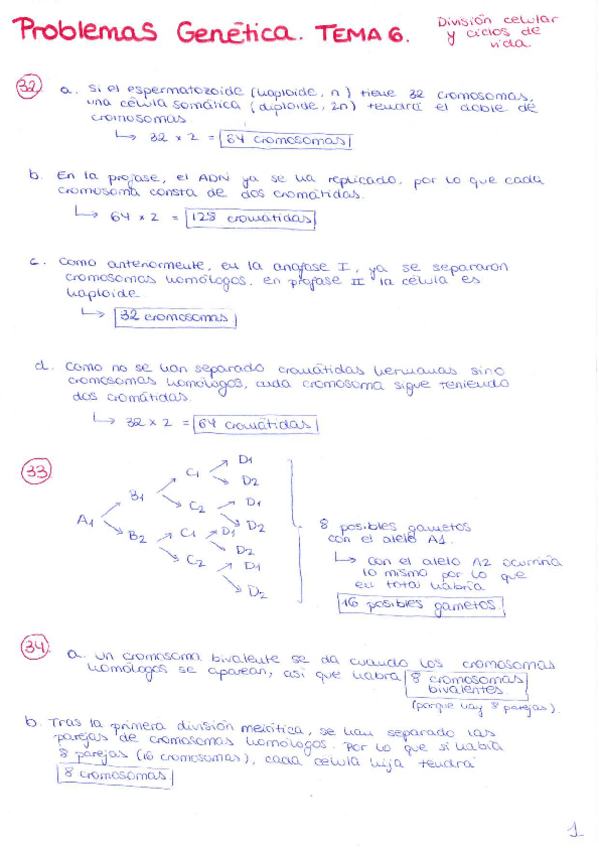 Problemas Genética. TEMA 6.
División celular
y ciclos de
vida.
32
a. Si el espermatozoide (haploide, n) tiene 32 cromosomas,
una célula somática (diploide, 2n) tendrá el doble de
cromosomas
↳ 32 x 2 = 64 cromosomas
b. En la profase, el ADN ya se ha replicado, por lo que cada
cromosoma consta de dos cromátidas.
↳ 64 x 2 = 128 cromátidas
c. Como anteriormente, en la anafase I, ya se separaron
cromosomas homólogos, en profase II la célula es
haploide.
↳ 32 cromosomas
d. Como no se han separado cromátidas hermanas sino
cromosomas homólogos, cada cromosoma sigue teniendo
dos cromátidas.
↳ 32 x 2 = 64 cromátidas
33
A1
B1
C1
D1
D2
C2
D1
D2
B2
C1
D1
D2
C2
D1
D2
8 posibles gametos
con el alelo A1.
↳ con el alelo A2 ocurriría
lo mismo por lo que
en total habría
16 posibles gametos.
34
a. Un cromosoma bivalente se da cuando los cromosomas
homólogos se aparean, así que habrá 8 cromosomas
bivalentes.
(porque hay 8 parejas).
b. Tras la primera división meiótica, se han separado las
parejas de cromosomas homólogos. Por lo que si había
8 parejas (16 cromosomas), cada célula hija tendrá
8 cromosomas
1